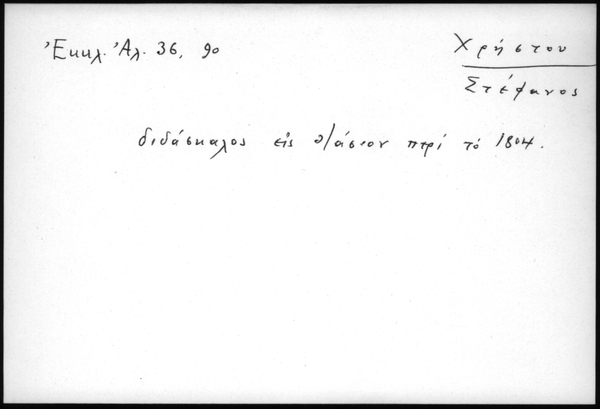 Ἐκκλ. Ἀλ. 36, 90
Χρήστου
Στέφανος
διδάσκαλος εἰς Θάσιον περί τό 1804.